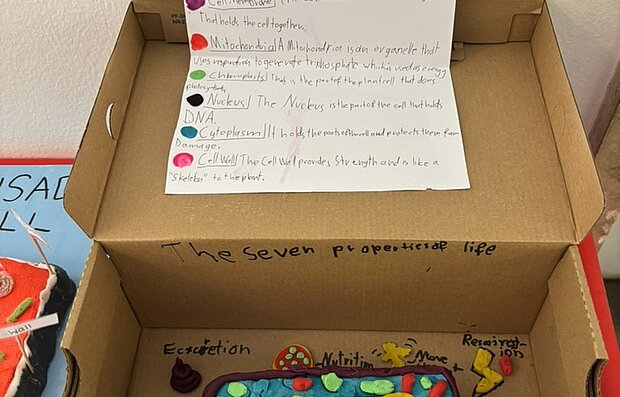 Cell Membrane
That holds the cell together.
Mitochondrial A Mitochondrion is an organelle that
uses respiration to generate triphosphate which is used as energy
Chloroplasts That is the part of the plant cell that does
Nucleus The Nucleus is the part of the cell that holds
DNA.
Cytoplasm It holds the parts of the cell and protects them from
Damage.
Cell Wall The Cell Wall provides Strength and is like a
"Skeleton" to the plant.
USAD
LL
The seven properties of life
wall
Excretion
Nutrition
Move
Respirat-
ion